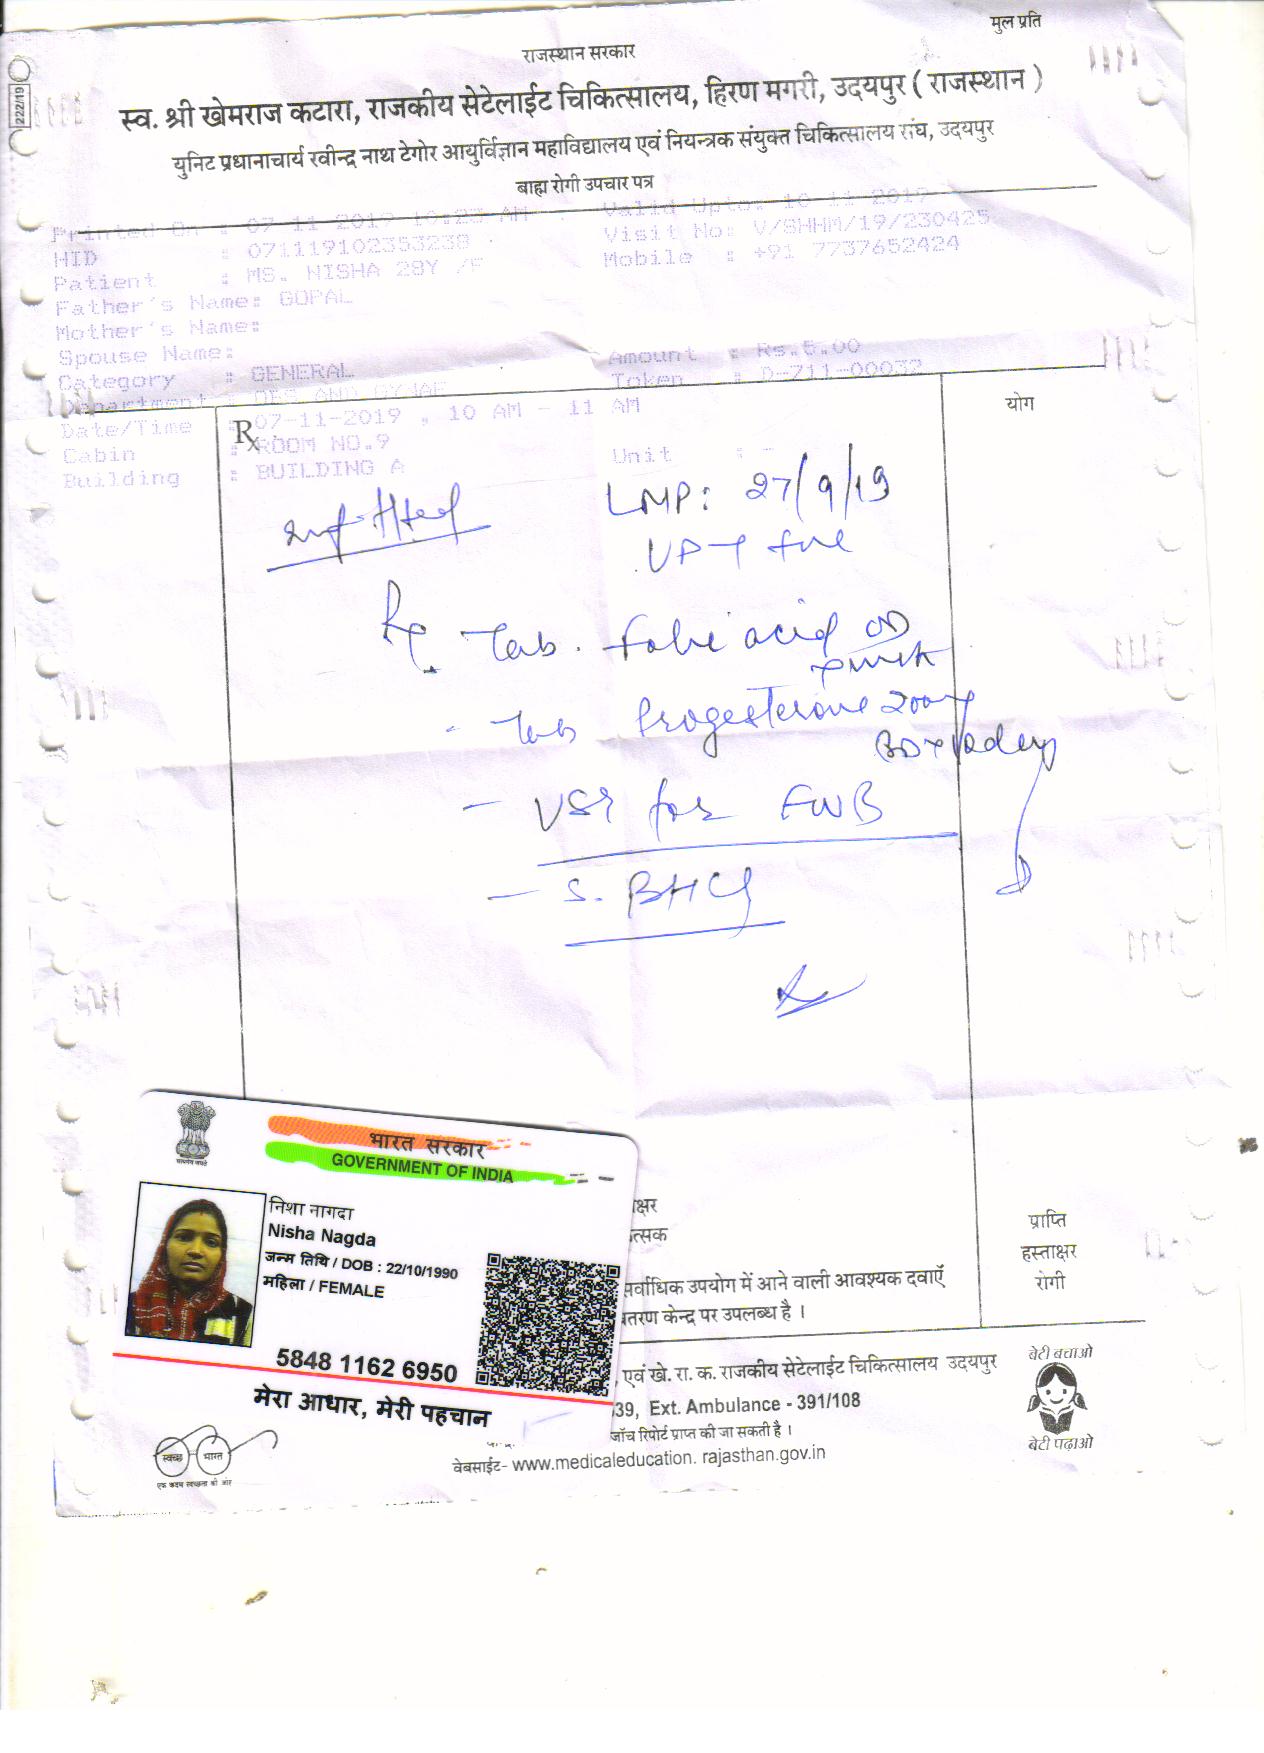 मुल प्रति
राजस्थान सरकार
स्व. श्री खेमराज कटारा, राजकीय सेटेलाईट चिकित्सालय, हिरण मगरी, उदयपुर ( राजस्थान )
युनिट प्रधानाचार्य रवीन्द्र नाथ टेगोर आयुर्विज्ञान महाविद्यालय एवं नियन्त्रक संयुक्त चिकित्सालय संघ, उदयपुर
बाह्य रोगी उपचार पत्र
22/2/19
Printed On : 07-11-2019 10:23 AM Valid Upto: 10-11-2019
HID : 071119102353238 Visit No: V/SHHM/19/230425
Patient : MS. NISHA 28Y /F Mobile : +91 7737652424
Father's Name: GOPAL
Mother's Name:
Spouse Name: Amount : Rs.5.00
Category : GENERAL Token : D-711-00032
Department : OBS AND GYNAE
Date/Time : 07-11-2019 , 10 AM - 11 AM
Cabin : ROOM NO.9
Building : BUILDING A Unit : -
Rx
योग
LMP: 27/9/19
UPT +ve
Rx Tab. Folic acid OD
- Tab Progesterone 200
BD x 10 day
- USG for FWB
- S. BHCG
भारत सरकार
GOVERNMENT OF INDIA
निशा नागदा
Nisha Nagda
जन्म तिथि / DOB : 22/10/1990
महिला / FEMALE
5848 1162 6950
मेरा आधार, मेरी पहचान
क्षर
त्सक
प्राप्ति
हस्ताक्षर
रोगी
सर्वाधिक उपयोग में आने वाली आवश्यक दवाएँ
तरण केन्द्र पर उपलब्ध है ।
, एवं खे. रा. क. राजकीय सेटेलाईट चिकित्सालय उदयपुर
39, Ext. Ambulance - 391/108
जाँच रिपोर्ट प्राप्त की जा सकती है ।
वेबसाईट- www.medicaleducation. rajasthan.gov.in
बेटी बचाओ
बेटी पढ़ाओ
स्वच्छ भारत
एक कदम स्वच्छता की ओर